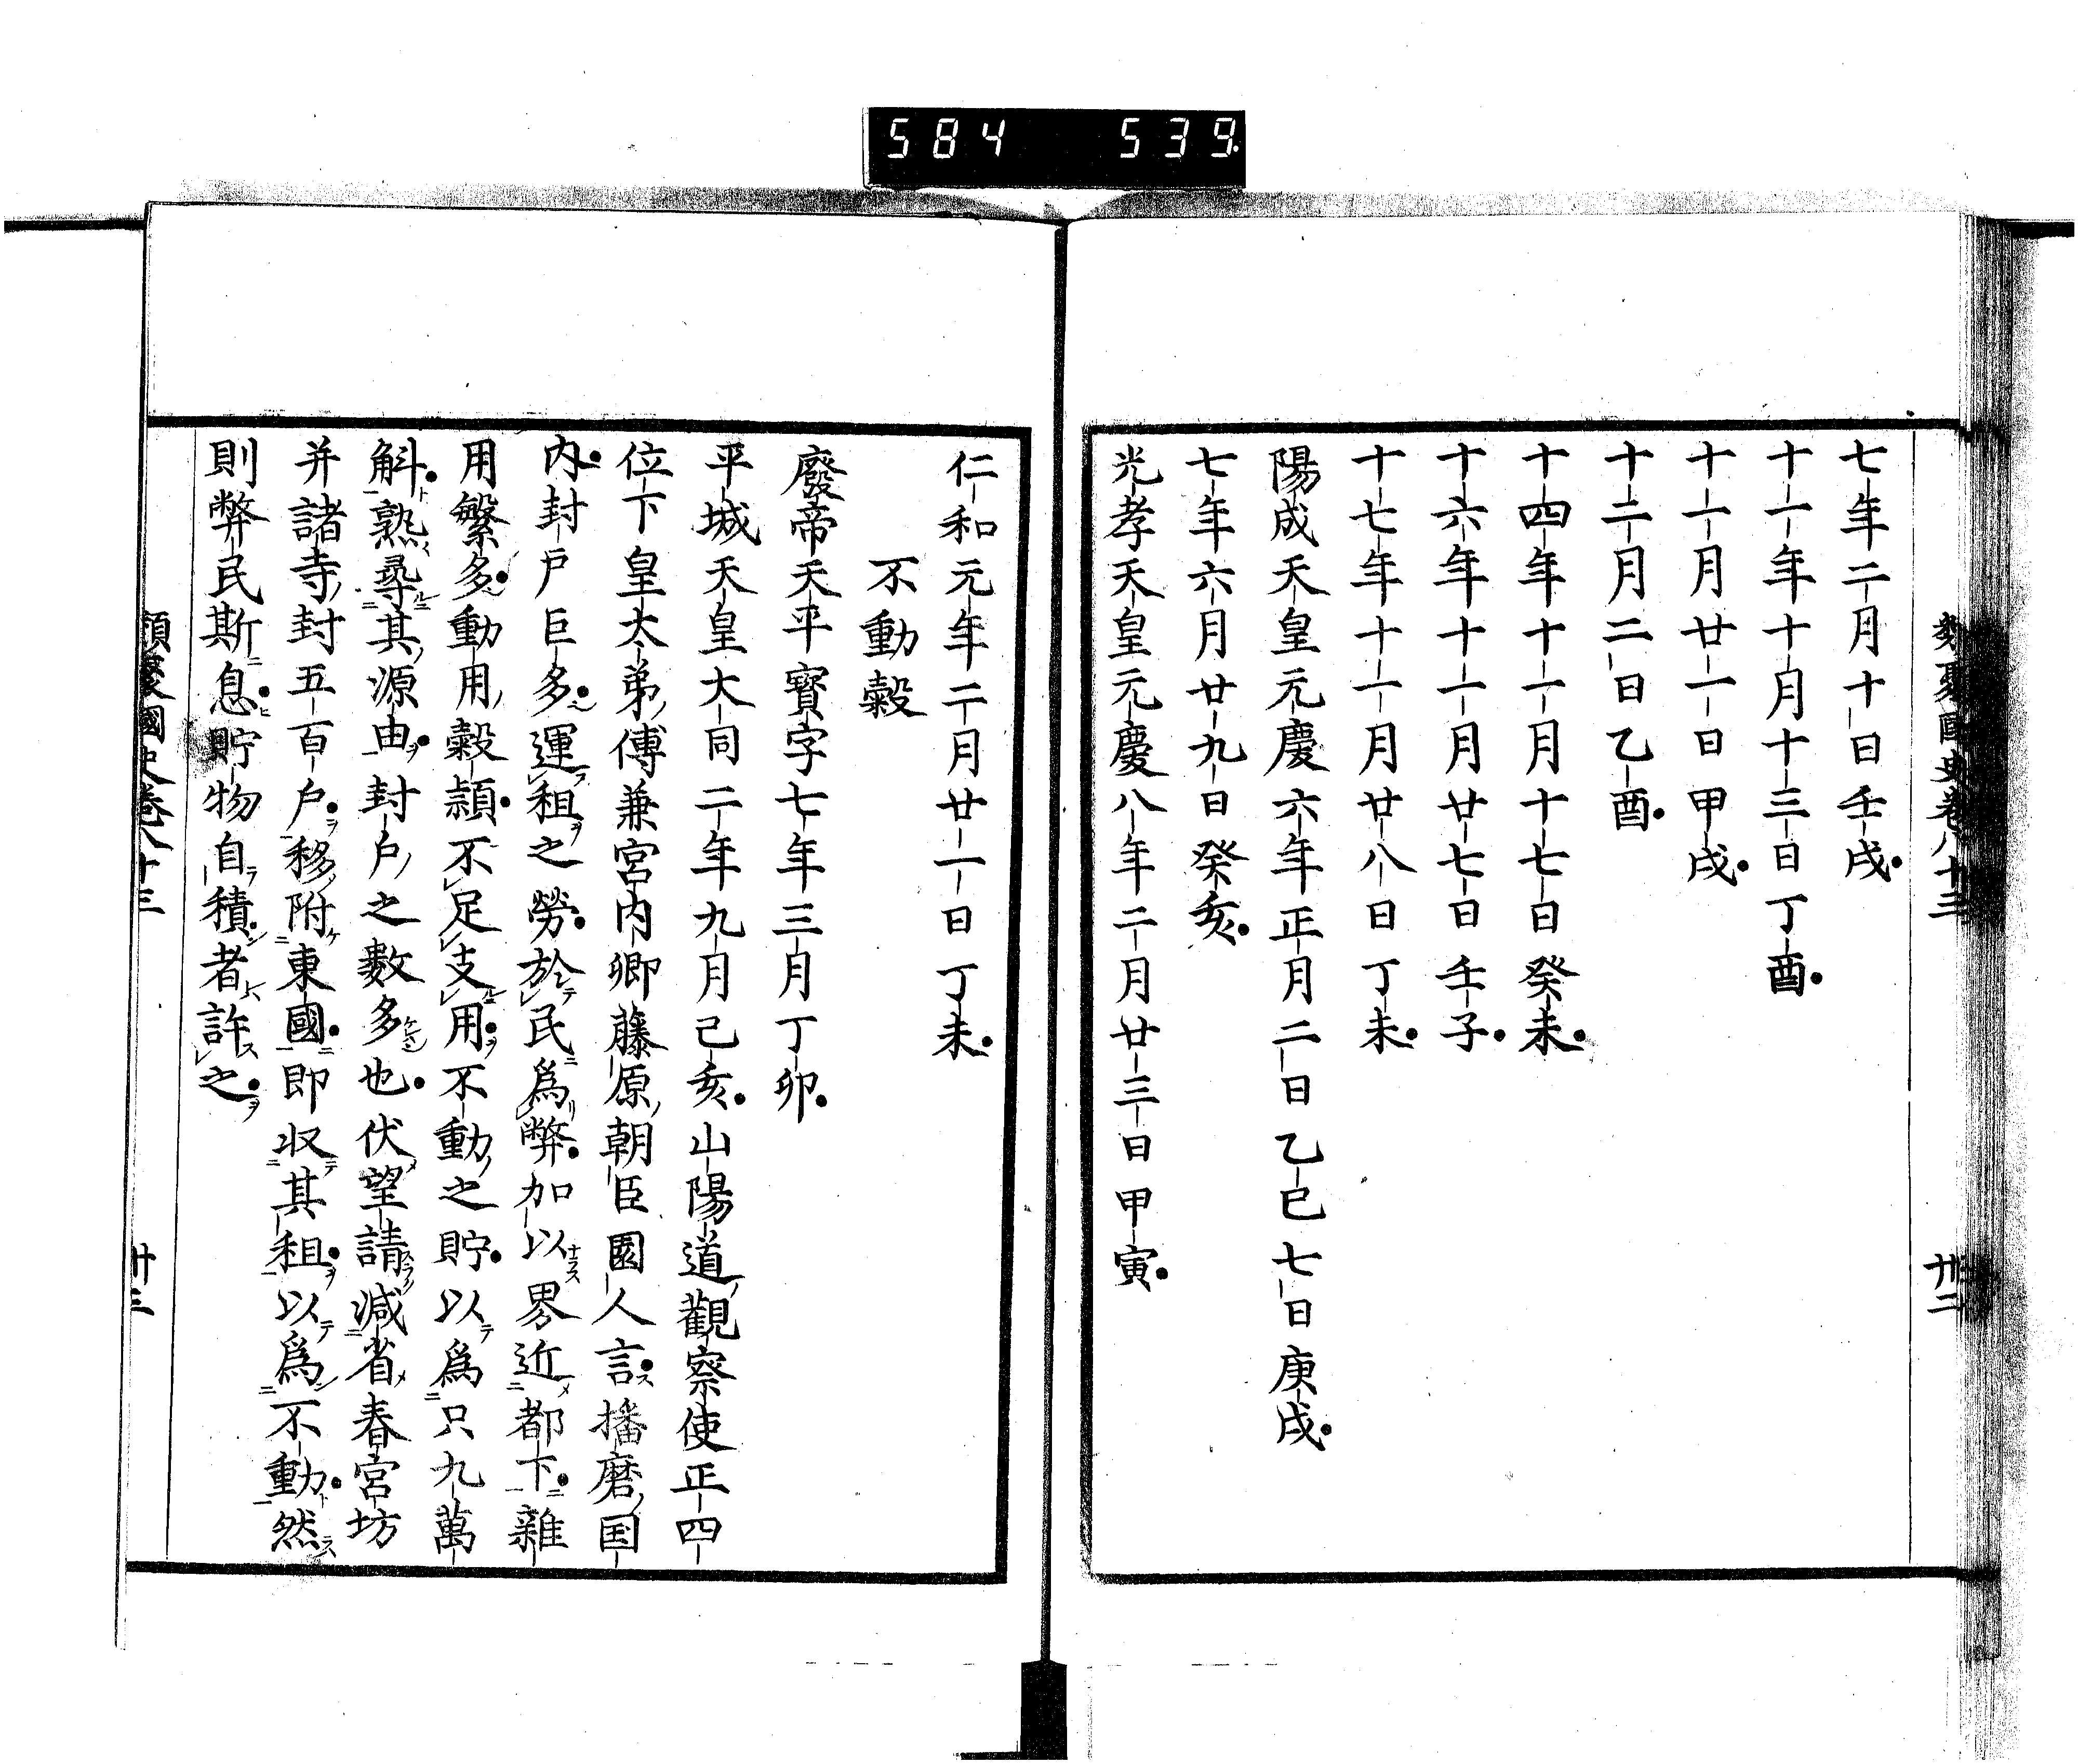 584 539
類聚國史卷八十三 卅二
七年二月十日壬戌
十一年十月十三日丁酉
十一月廿一日甲戌
十二月二日乙酉
十四年十一月十七日癸未
十六年十一月廿七日壬子
十七年十一月廿八日丁未
陽成天皇元慶六年正月二日乙巳七日庚戌
七年六月廿九日癸亥
光孝天皇元慶八年二月廿三日甲寅
仁和元年二月廿一日丁未
不動糓
廢帝天平寳字七年三月丁卯
平城天皇大同二年九月己亥山陽道觀察使正四
位下皇太弟傅兼宮内卿藤原朝臣園人言播磨国
内封戸巨多運租之勞於民爲弊加以界近都下雜
用繁多動用糓頴不足支用不動之貯以爲只九萬
斛熟尋其源由封戸之數多也伏望請減省春宮坊
并諸寺封五百戸移附東國即収其租以爲不動然
則弊民斯息貯物自積者許之
類聚國史卷八十三 卅三